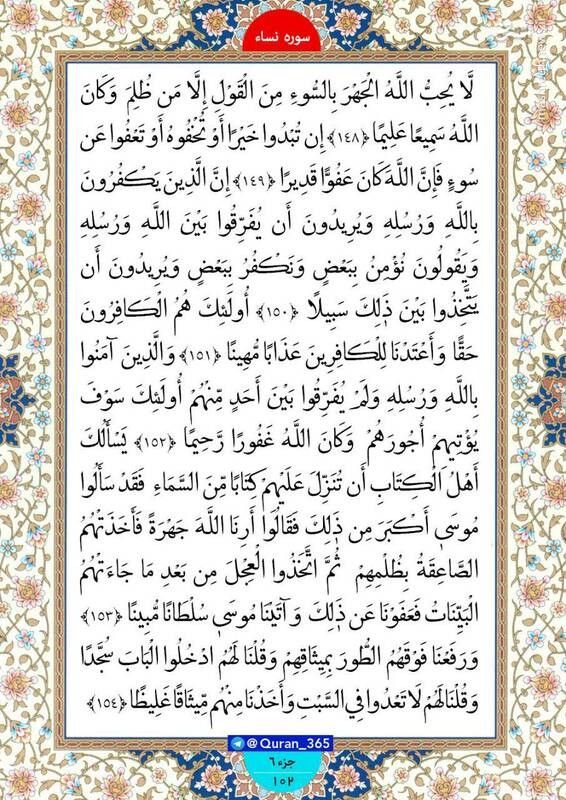 سوره نساء
لَّا يُحِبُّ اللَّهُ الْجَهْرَ بِالسُّوءِ مِنَ الْقَوْلِ إِلَّا مَن ظُلِمَ وَكَانَ
اللَّهُ سَمِيعًا عَلِيمًا ﴿١٤٨﴾ إِن تُبْدُوا خَيْرًا أَوْ تُخْفُوهُ أَوْ تَعْفُوا عَن
سُوءٍ فَإِنَّ اللَّهَ كَانَ عَفُوًّا قَدِيرًا ﴿١٤٩﴾ إِنَّ الَّذِينَ يَكْفُرُونَ
بِاللَّهِ وَرُسُلِهِ وَيُرِيدُونَ أَن يُفَرِّقُوا بَيْنَ اللَّهِ وَرُسُلِهِ
وَيَقُولُونَ نُؤْمِنُ بِبَعْضٍ وَنَكْفُرُ بِبَعْضٍ وَيُرِيدُونَ أَن
يَتَّخِذُوا بَيْنَ ذَٰلِكَ سَبِيلًا ﴿١٥٠﴾ أُولَٰئِكَ هُمُ الْكَافِرُونَ
حَقًّا وَأَعْتَدْنَا لِلْكَافِرِينَ عَذَابًا مُّهِينًا ﴿١٥١﴾ وَالَّذِينَ آمَنُوا
بِاللَّهِ وَرُسُلِهِ وَلَمْ يُفَرِّقُوا بَيْنَ أَحَدٍ مِّنْهُمْ أُولَٰئِكَ سَوْفَ
يُؤْتِيهِمْ أُجُورَهُمْ وَكَانَ اللَّهُ غَفُورًا رَّحِيمًا ﴿١٥٢﴾ يَسْأَلُكَ
أَهْلُ الْكِتَابِ أَن تُنَزِّلَ عَلَيْهِمْ كِتَابًا مِّنَ السَّمَاءِ فَقَدْ سَأَلُوا
مُوسَىٰ أَكْبَرَ مِن ذَٰلِكَ فَقَالُوا أَرِنَا اللَّهَ جَهْرَةً فَأَخَذَتْهُمُ
الصَّاعِقَةُ بِظُلْمِهِمْ ثُمَّ اتَّخَذُوا الْعِجْلَ مِن بَعْدِ مَا جَاءَتْهُمُ
الْبَيِّنَاتُ فَعَفَوْنَا عَن ذَٰلِكَ وَآتَيْنَا مُوسَىٰ سُلْطَانًا مُّبِينًا ﴿١٥٣﴾
وَرَفَعْنَا فَوْقَهُمُ الطُّورَ بِمِيثَاقِهِمْ وَقُلْنَا لَهُمُ ادْخُلُوا الْبَابَ سُجَّدًا
وَقُلْنَا لَهُمْ لَا تَعْدُوا فِي السَّبْتِ وَأَخَذْنَا مِنْهُم مِّيثَاقًا غَلِيظًا ﴿١٥٤﴾
@Quran_365
جزء ٦
١٠٢